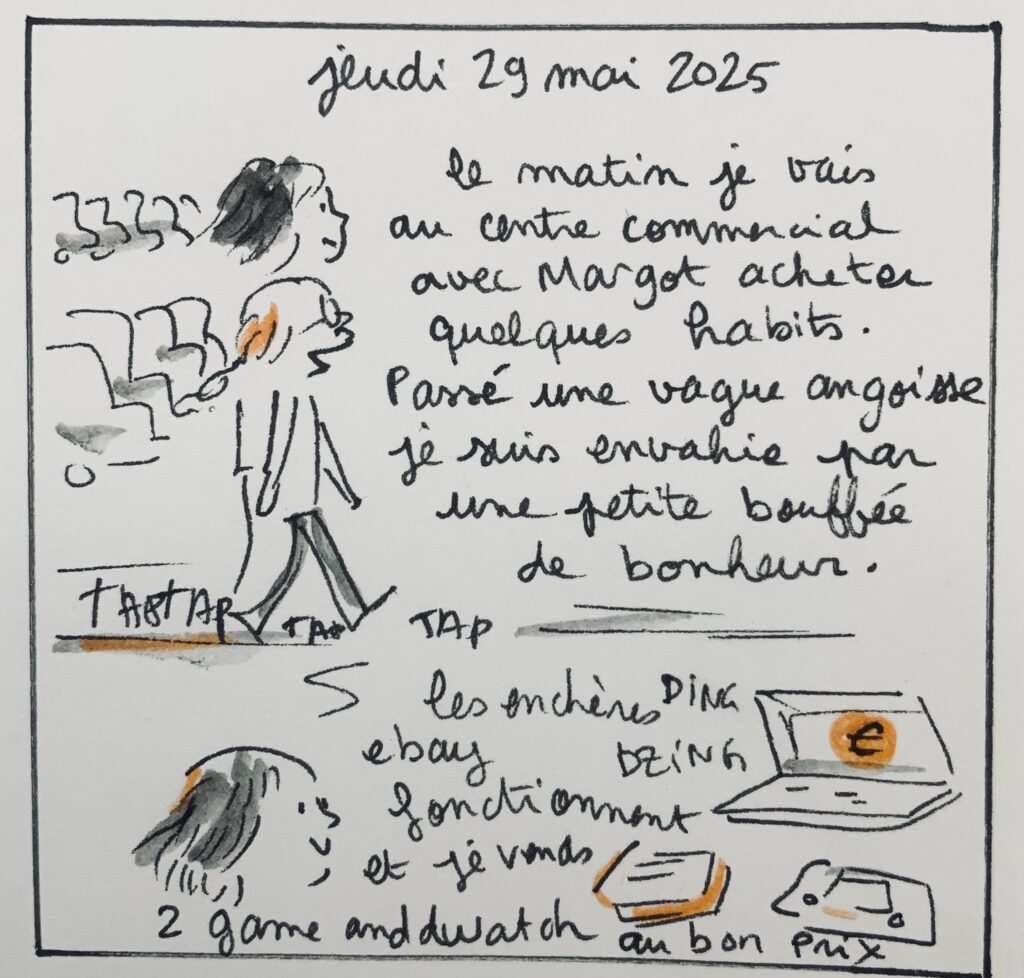 jeudi 29 mai 2025
le matin je vais
au centre commercial
avec Margot acheter
quelques habits.
Passé une vague angoisse
je suis envahie par
une petite bouffée
de bonheur.
TAP TAP TAP TAP
les enchères DING
ebay DZING
fonctionnent
€
et je vends
2 game anddwatch au bon prix